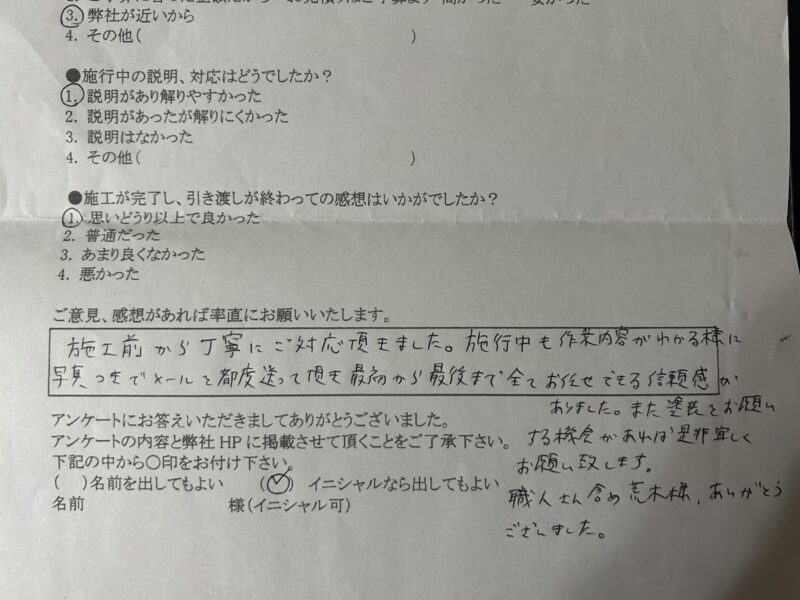 ③. 弊社が近いから
4. その他( )
●施行中の説明、対応はどうでしたか？
①. 説明があり解りやすかった
2. 説明があったが解りにくかった
3. 説明はなかった
4. その他( )
●施工が完了し、引き渡しが終わっての感想はいかがでしたか？
①. 思いどうり以上で良かった
2. 普通だった
3. あまり良くなかった
4. 悪かった
ご意見、感想があれば率直にお願いいたします。
施工前から丁寧にご対応頂きました。施行中も作業内容がわかる様に
写真つきでメールを都度送って頂き最初から最後まで全てお任せできる信頼感が
ありました。また塗装をお願い
する機会があれば是非宜しく
お願い致します。
職人さん含め荒木様、ありがとう
ございました。
アンケートにお答えいただきましてありがとうございました。
アンケートの内容と弊社HPに掲載させて頂くことをご了承下さい。
下記の中から〇印をお付け下さい。
( )名前を出してもよい (✓) イニシャルなら出してもよい
名前 様(イニシャル可)